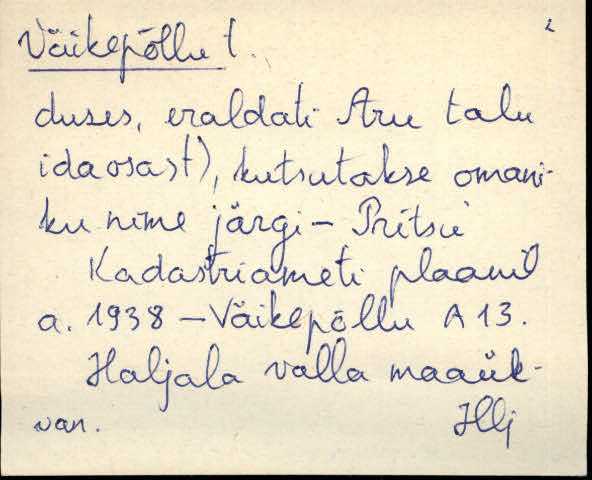 2
Väikepõllu t.
duses, eraldati Aru talu
idaosast), kutsutakse omani-
ku nime järgi – Pritsu
Kadastriameti plaanil
a. 1938 – Väikepõllu A 13.
Haljala valla maaük-
van. Hlj